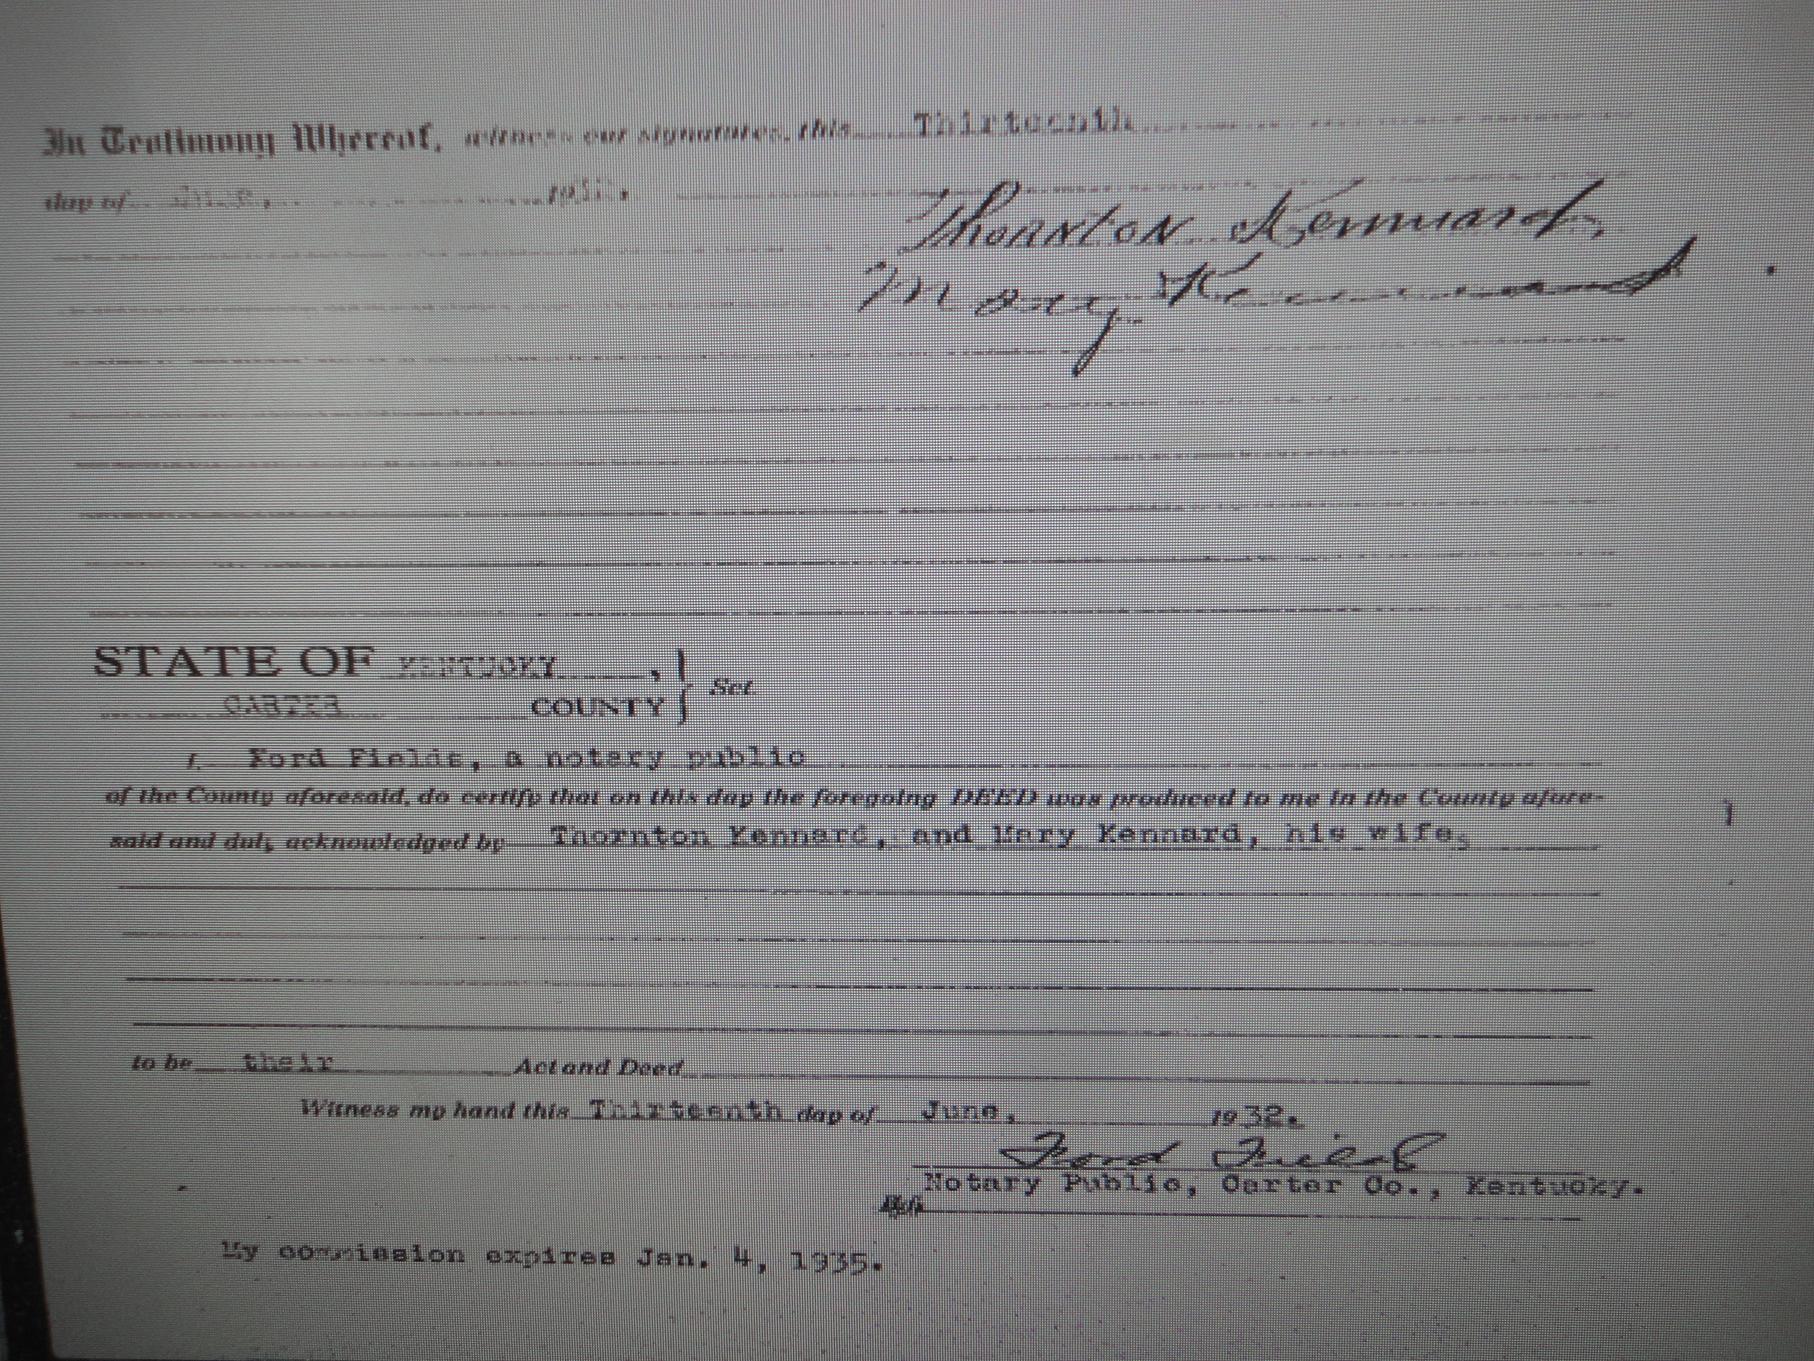 In Testimony Whereof, witness our signatures, this Thirteenth
day of June,
Thornton Kennard,
Mary Kennard
STATE OF KENTUCKY , }
CARTER COUNTY } Sct.
I, Ford Fields, a notary public
of the County aforesaid, do certify that on this day the foregoing DEED was produced to me in the County afore-
said and duly acknowledged by Thornton Kennard, and Mary Kennard, his wife,
to be their Act and Deed
Witness my hand this Thirteenth day of June, 1932.
Ford Fields
Notary Public, Carter Co., Kentucky.
My commission expires Jan. 4, 1935.